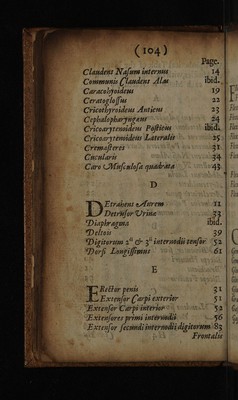 (104)
Page.
Claudens Nasum internus 14
Communis Claudens Alas ibid.
Caracohyoideus 19
Ceratoglossus 22
Cricothyroideus Anticus 23
Cephalopharyngæus 24
Cricoarytenoideus Posticus ibid.
Cricoarytenoideus Lateralis 25
Cremasteres 31
Cucularis 34
Caro Musculosa quadrata 43
D
DEtrahens Aurem 11
Detrusor Urinæ 33
Diaphragma ibid.
Deltois 39
Digitorum 2i & 3i internodii tensor 52
Dorsi Longissimus 61
E
ERector penis 31
Extensor Carpi exterior 51
Extensor Carpi interior 52
Extensores primi internodii 56
Extensor secundi internodii digitorum 83
Frontalis